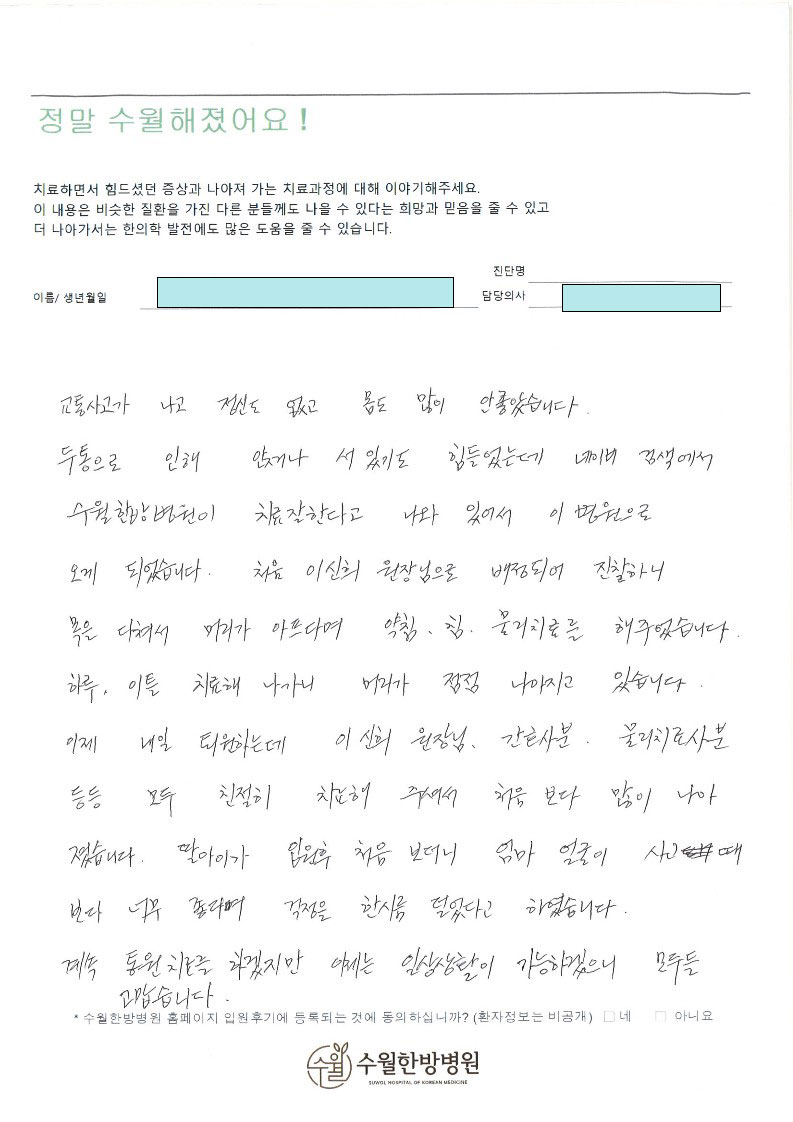 정말 수월해졌어요!
치료하면서 힘드셨던 증상과 나아져 가는 치료과정에 대해 이야기해주세요.
이 내용은 비슷한 질환을 가진 다른 분들께도 나을 수 있다는 희망과 믿음을 줄 수 있고
더 나아가서는 한의학 발전에도 많은 도움을 줄 수 있습니다.
진단명
이름/ 생년월일
담당의사
교통사고가 나고 정신도 없고 몸도 많이 안좋았습니다.
두통으로 인해 앉거나 서 있기도 힘들었는데 네이버 검색에서
수월한방병원이 치료잘한다고 나와 있어서 이 병원으로
오게 되었습니다. 처음 이신희 원장님으로 배정되어 진찰하니
목을 다쳐서 머리가 아프다며 약침, 침, 물리치료를 해주었습니다.
하루, 이틀 치료해 나가니 머리가 점점 나아지고 있습니다.
이제 내일 퇴원하는데 이신희 원장님, 간호사분, 물리치료사분
등등 모두 친절히 치료해 주셔서 처음 보다 많이 나아
졌습니다. 딸아이가 입원후 처음 보더니 엄마 얼굴이 사고 때
보다 너무 좋다며 걱정을 한시름 덜었다고 하였습니다.
계속 통원치료를 하겠지만 이제는 일상생활이 가능하겠으니 모두들
고맙습니다.
* 수월한방병원 홈페이지 입원후기에 등록되는 것에 동의하십니까? (환자정보는 비공개) □ 네 □ 아니요
수월 수월한방병원
SUWOL HOSPITAL OF KOREAN MEDICINE